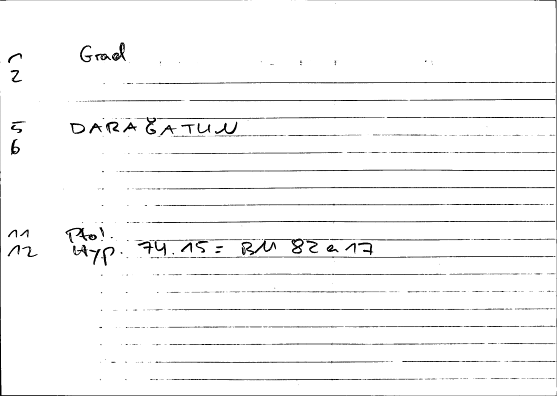 1 Grad
2
5 DARAǦATUN
6
11 Ptol.
12 Hyp. 74.15 = BM 82 a 17